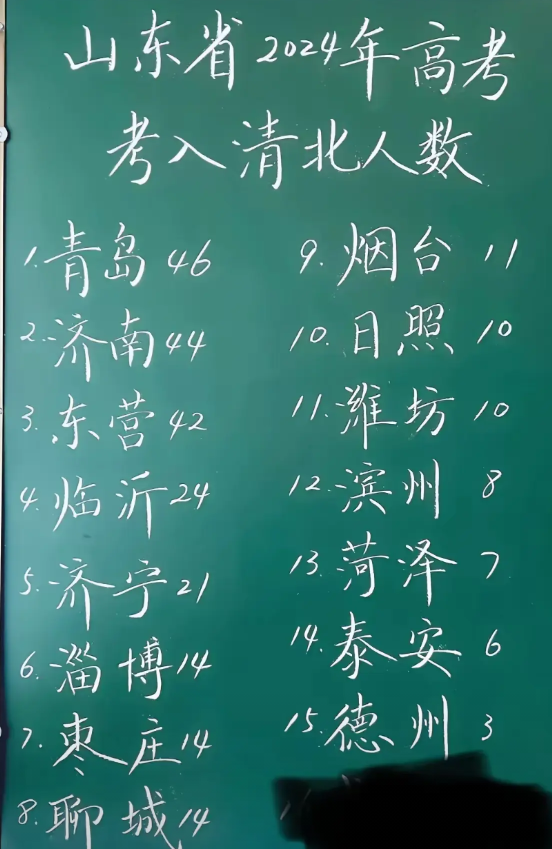 山东省2024年高考
考入清北人数
1.青岛 46
2.济南 44
3.东营 42
4.临沂 24
5.济宁 21
6.淄博 14
7.枣庄 14
8.聊城 14
9.烟台 11
10.日照 10
11.潍坊 10
12.滨州 8
13.菏泽 7
14.泰安 6
15.德州 3